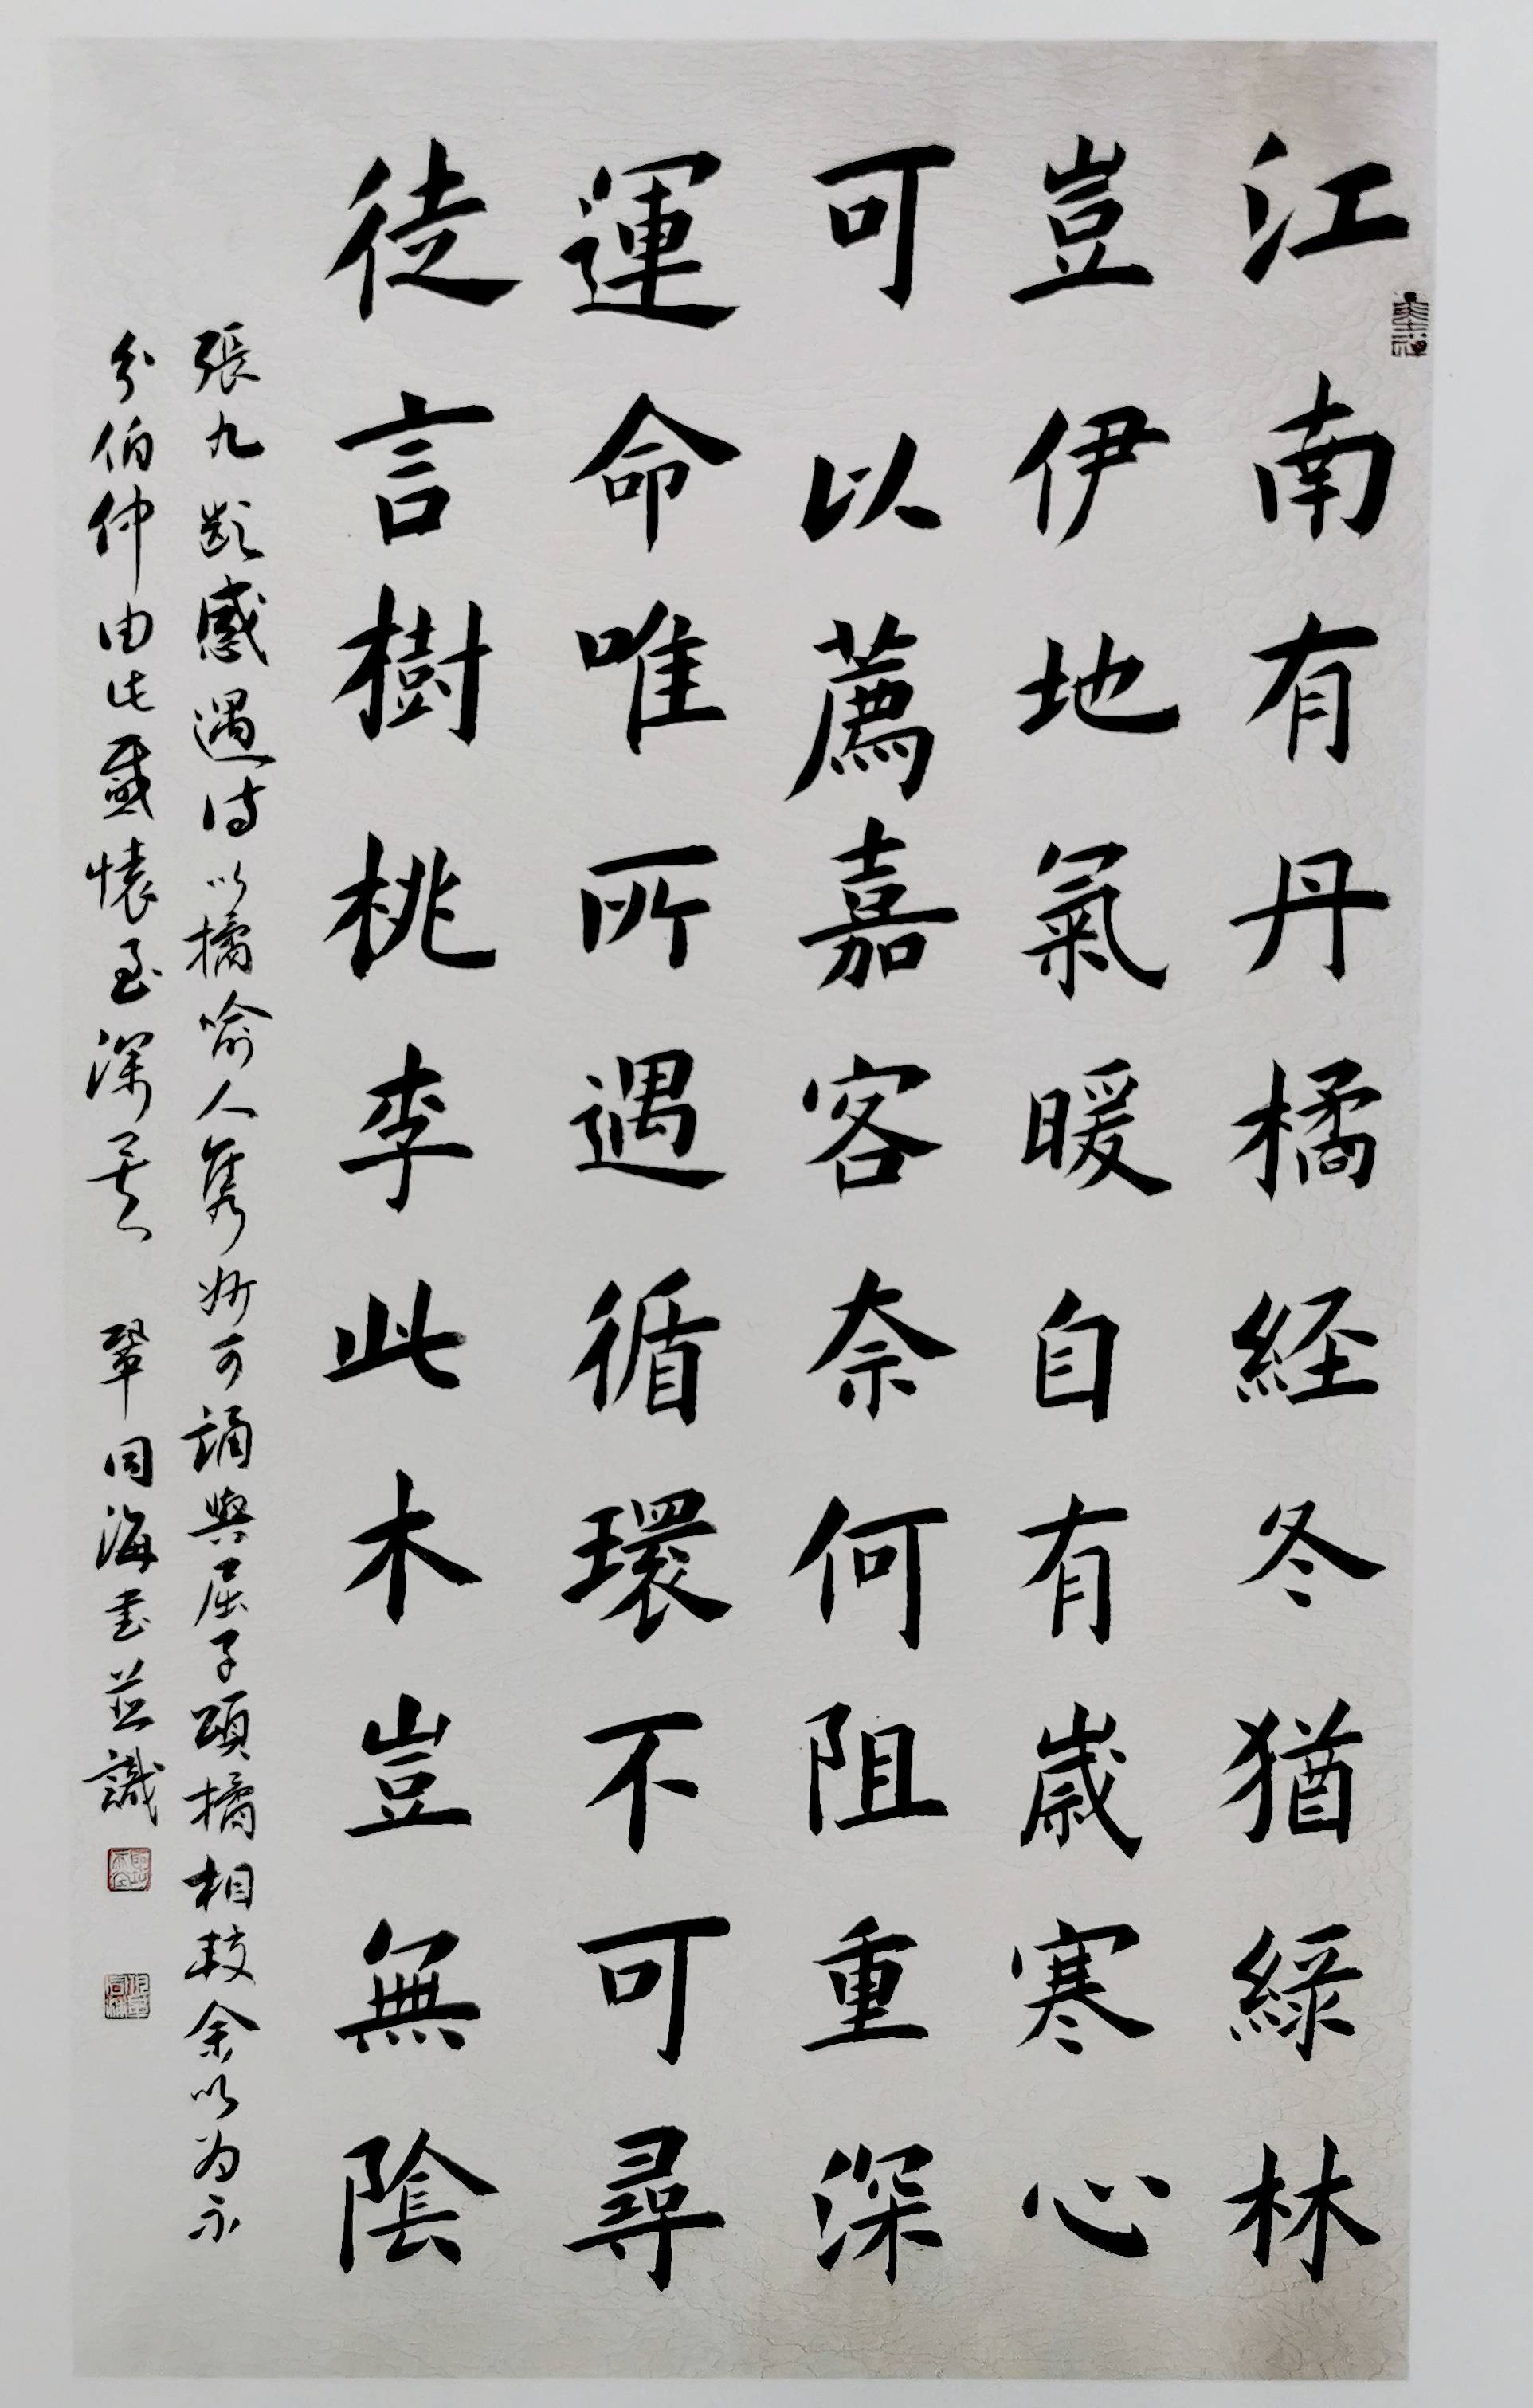 江南有丹橘経冬猶緑林
豈伊地氣暖自有歲寒心
可以薦嘉客奈何阻重深
運命唯所遇循環不可尋
徒言樹桃李此木豈無陰
張九齡感遇诗以橘喻人雋妙可誦與屈子頌橘相较余以为不
分伯仲由此感懐至深矣 鞏同海書並識